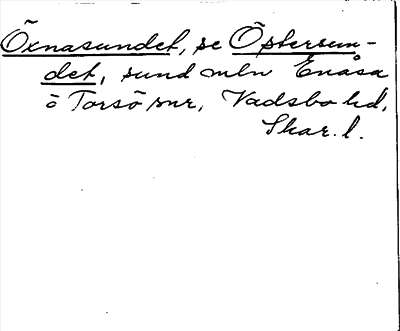 Öxnasundet, se Östersun-
det, sund mln Enåsa
o Torsö snr, Vadsbo hd,
Skar. l.